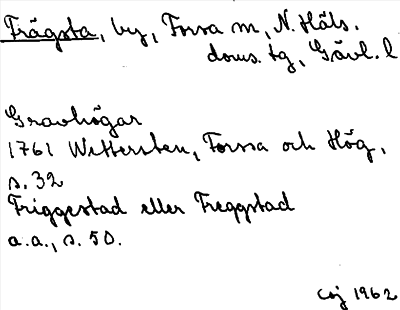 Frägsta, by, Forsa sn, N. Häls.
doms. tg, Gävl. l
Gravhögar
1761 Wettersten, Forssa och Hög,
s. 32
Friggestad eller Freggstad
a.a., s. 50.
CJ 1962